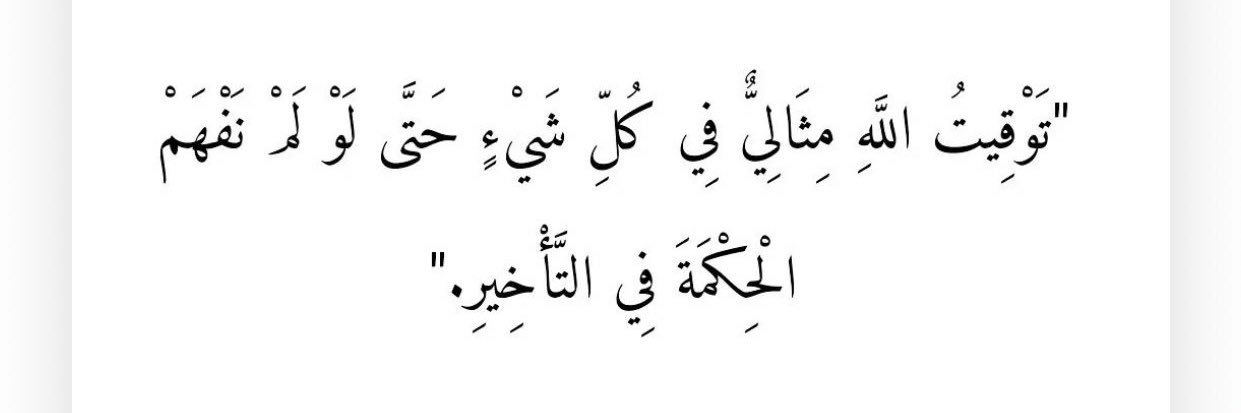 "تَوْقِيتُ اللَّهِ مِثَالِيٌّ فِي كُلِّ شَيْءٍ حَتَّى لَوْ لَمْ نَفْهَمْ
الْحِكْمَةَ فِي التَّأْخِيرِ."